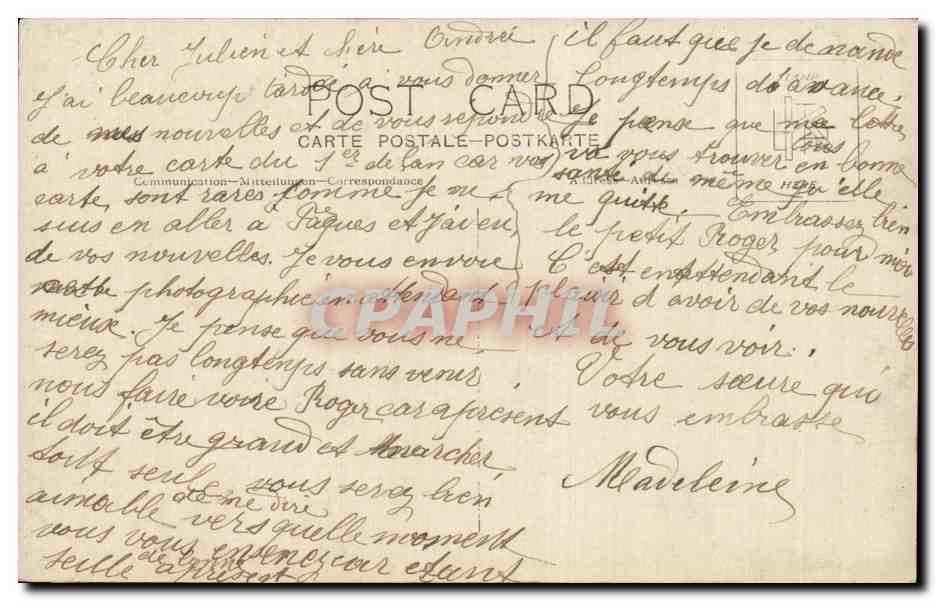 Cher Julien et chère Andrée
J'ai beaucoup tardé a vous donner
POST CARD
de mes nouvelles et de vous repondre
CARTE POSTALE-POSTKARTE
à votre carte du 1er de l'an car vos
Communication-Mitteilungen-Correspondance
carte sont rares comme je ne
suis en aller à Pâques et j'ai eu
de vos nouvelles. Je vous envoie
notre photographie en attendant
mieux. Je pense que vous ne
serez pas longtemps sans venir
nous faire voire Roger car apresent
il doit être grand et marcher
tout seule vous serez bien
aimable de me dire
vers quelle moment
vous vous en venez car etant
seille apresent
il faut que je demande
longtemps d'avance.
Je pense que ma lettre
va vous trouver tous en bonne
sante de même qu'elle
me quitte. Embrassez bien
le petit Roger pour moi
C'est en attendant le
plaisir d avoir de vos nouvelles
et de vous voir.
Votre sœure qui
vous embrasse
Madeleine
CPAPHIL